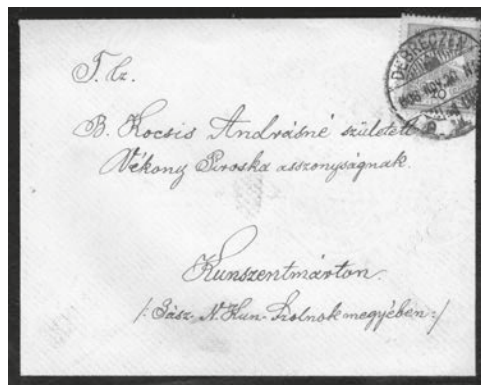 T. Cz.
B. Kocsis Andrásné született
Vékony Piroska asszonyságnak.
Kunszentmárton.
/: Jász-N.Kun-Szolnok megyében :/
DEBRECZEN